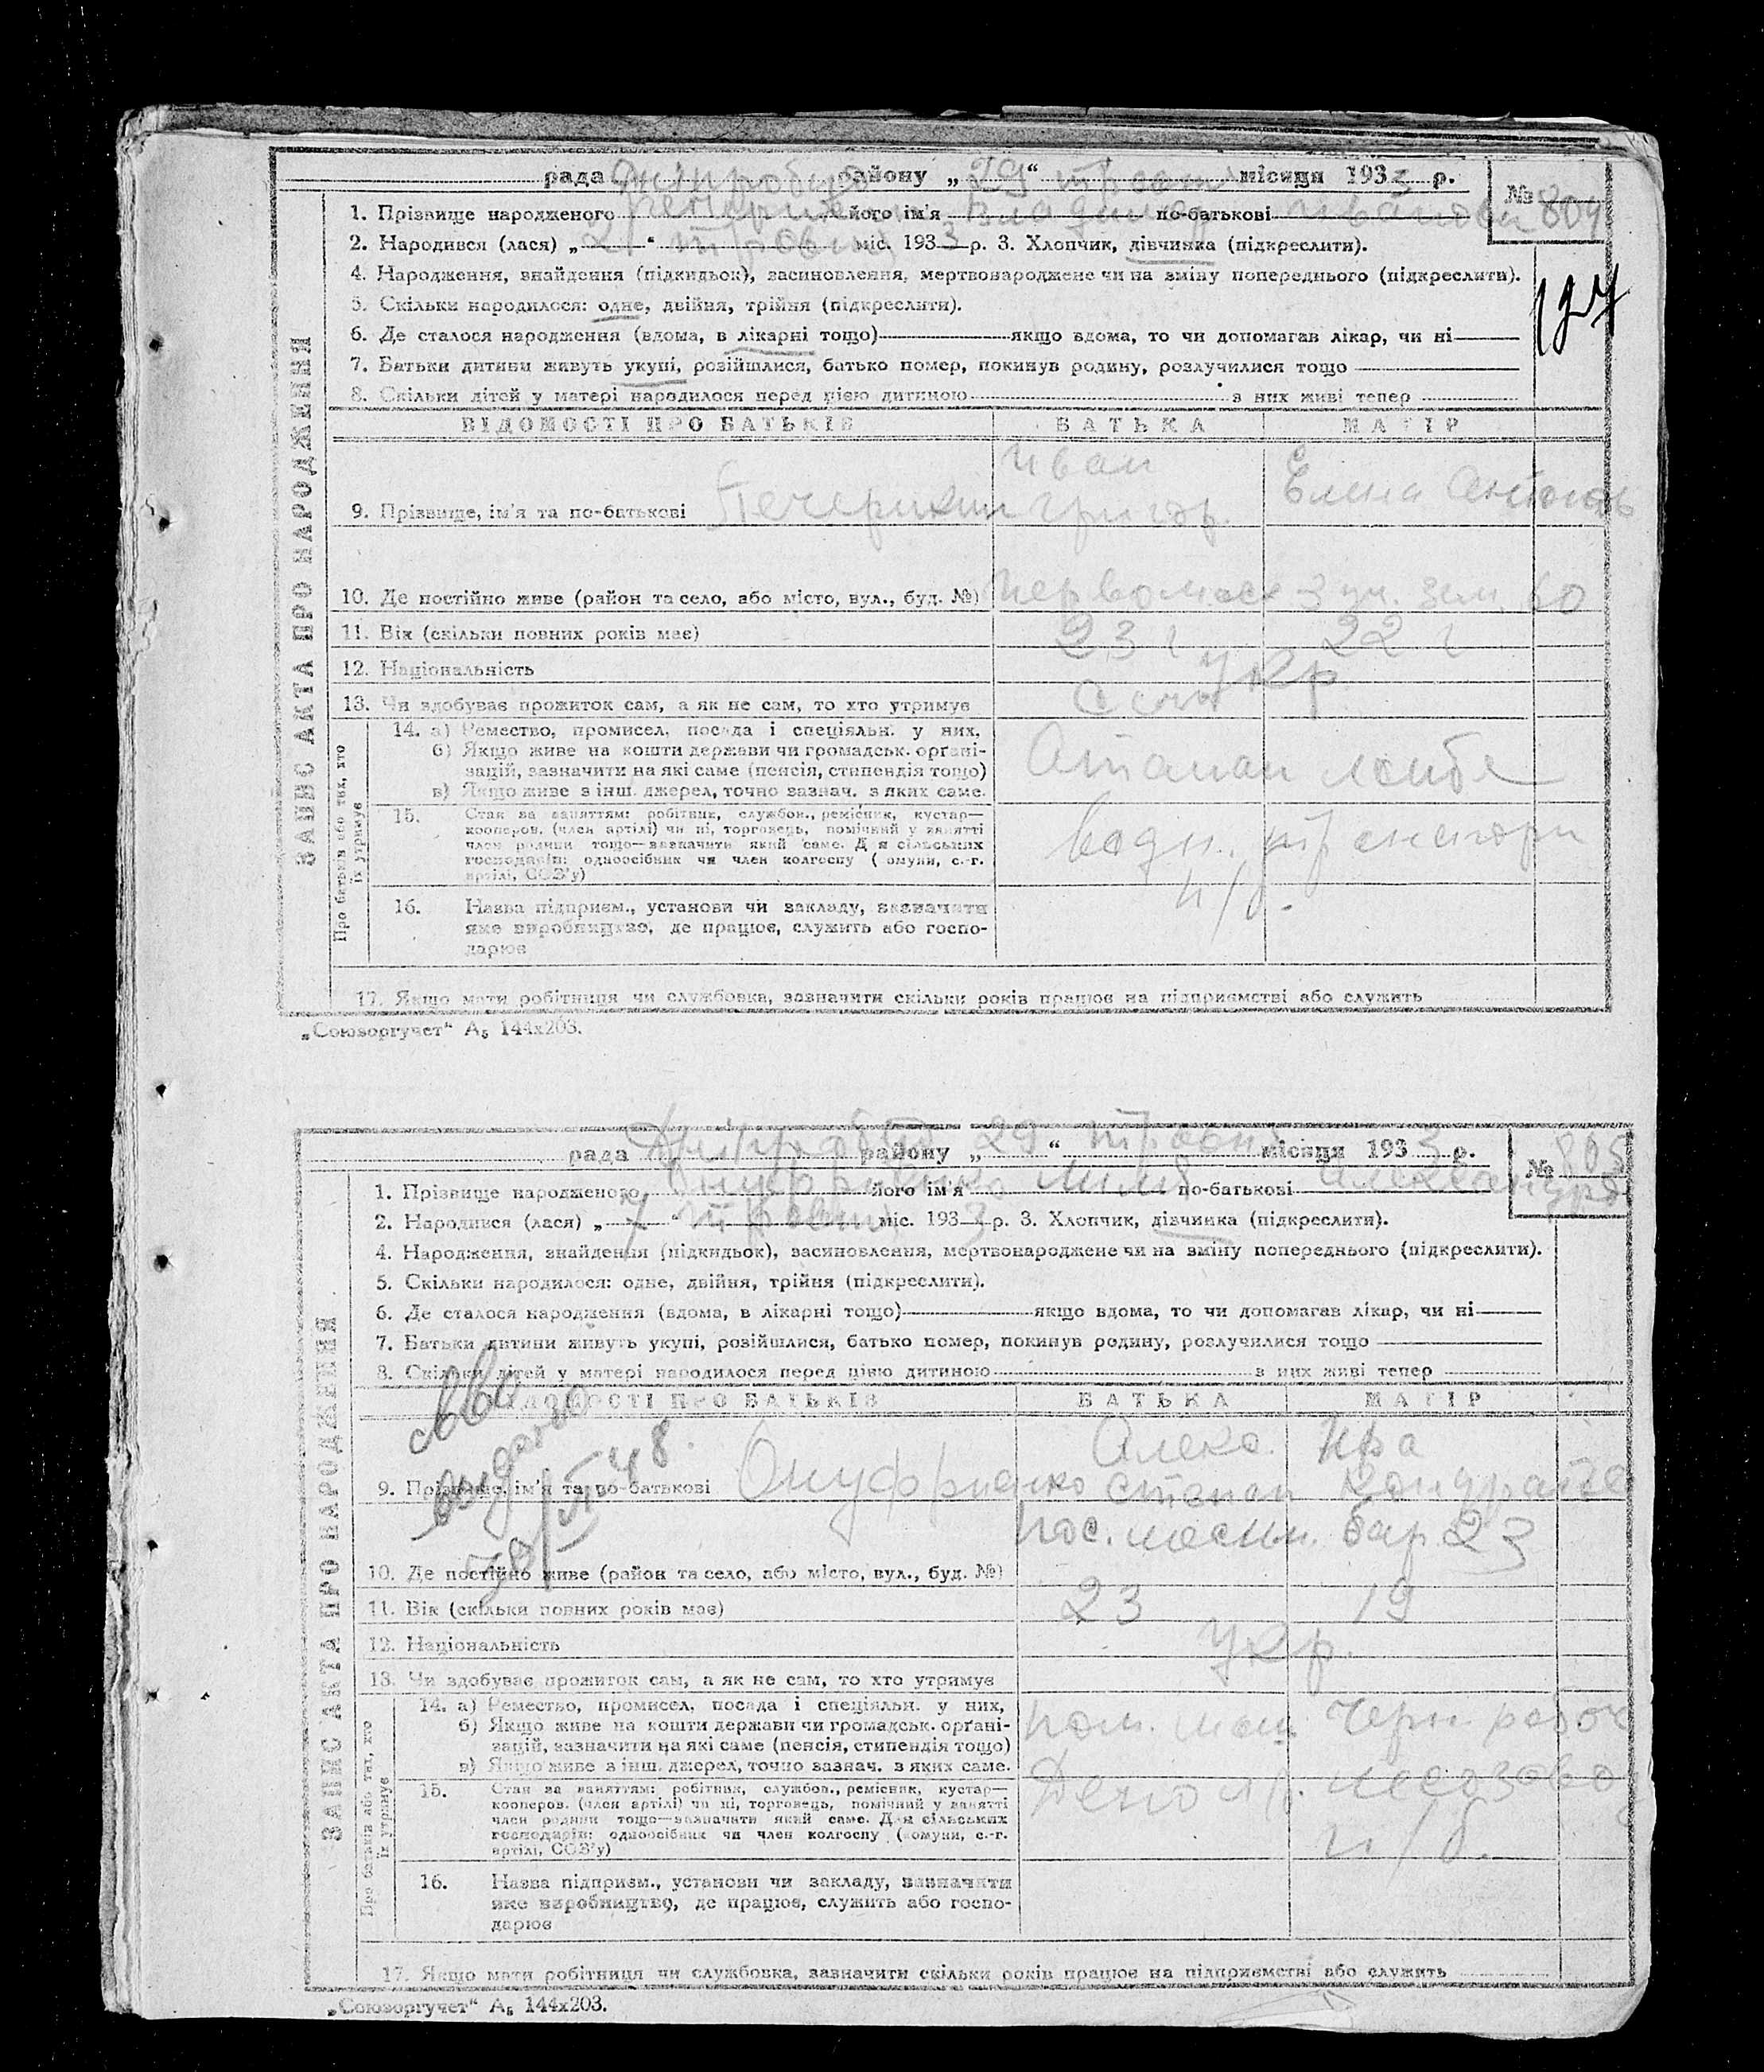 рада Дніпробуд району „29" травня місяця 1933 р. № 804
1. Прізвище народженого його ім'я по-батькові
2. Народився (лася) „2" травня міс. 1933 р. 3. Хлопчик, дівчинка (підкреслити).
4. Народження, знайдення (підкидьок), засиновлення, мертвонароджене чи на зміну попереднього (підкреслити).
5. Скільки народилося: одне, двійня, трійня (підкреслити).
6. Де сталося народження (вдома, в лікарні тощо) якщо вдома, то чи допомагав лікар, чи ні
7. Батьки дитини живуть укупі, розійшлися, батько помер, покинув родину, розлучилися тощо
8. Скільки дітей у матері народилося перед цією дитиною з них живі тепер
ЗАПИС АКТА ПРО НАРОДЖЕННЯ
ВІДОМОСТІ ПРО БАТЬКІВ БАТЬКА МАТІР
Иван Елена
9. Прізвище, ім'я та по-батькові Григор.
10. Де постійно живе (район та село, або місто, вул., буд. №) 60
11. Вік (скільки повних років має) 23 г 22 г
12. Національність Укр
13. Чи здобуває прожиток сам, а як не сам, то хто утримує
Про батьків або тих, хто їх утримує
14. а) Ремество, промисел, посада і спеціяльн. у них,
б) Якщо живе на кошти держави чи громадськ. орґані-
зацій, зазначити на які саме (пенсія, стипендія тощо)
в) Якщо живе з інш. джерел, точно зазнач. з яких саме.
15. Стан за заняттям: робітник, службов., ремісник, кустар—
кооперов. (член артілі) чи ні, торговець, помічний у занятті
член родини тощо—зазначити який саме. Для сільських
господарів: одноосібник чи член колгоспу (комуни, с.-г.
артілі, СОЗ'у)
водн. транспорт
н/б.
16. Назва підприєм., установи чи закладу, зазначити
яке виробництво, де працює, служить або госпо-
дарює
17. Якщо мати робітниця чи службовка, зазначити скільки років працює на підприємстві або служить
„Союзоргучет" А₅ 144х203.
рада району „29" травня місяця 1933 р. № 805
1. Прізвище народженого Онуфриенко його ім'я по-батькові
2. Народився (лася) „7" травня міс. 1933 р. 3. Хлопчик, дівчинка (підкреслити).
4. Народження, знайдення (підкидьок), засиновлення, мертвонароджене чи на зміну попереднього (підкреслити).
5. Скільки народилося: одне, двійня, трійня (підкреслити).
6. Де сталося народження (вдома, в лікарні тощо) якщо вдома, то чи допомагав лікар, чи ні
7. Батьки дитини живуть укупі, розійшлися, батько помер, покинув родину, розлучилися тощо
8. Скільки дітей у матері народилося перед цією дитиною з них живі тепер
ЗАПИС АКТА ПРО НАРОДЖЕННЯ
ВІДОМОСТІ ПРО БАТЬКІВ БАТЬКА МАТІР
Алекс. Ира
9. Прізвище, ім'я та по-батькові Онуфриенко Степан
бар 23
10. Де постійно живе (район та село, або місто, вул., буд. №)
11. Вік (скільки повних років має) 23 19
12. Національність Укр.
13. Чи здобуває прожиток сам, а як не сам, то хто утримує
Про батьків або тих, хто їх утримує
14. а) Ремество, промисел, посада і спеціяльн. у них,
б) Якщо живе на кошти держави чи громадськ. орґані-
зацій, зазначити на які саме (пенсія, стипендія тощо)
в) Якщо живе з інш. джерел, точно зазнач. з яких саме.
пом. маш. Черн. рабоч
15. Стан за заняттям: робітник, службов., ремісник, кустар—
кооперов. (член артілі) чи ні, торговець, помічний у занятті
член родини тощо—зазначити який саме. Для сільських
господарів: одноосібник чи член колгоспу (комуни, с.-г.
артілі, СОЗ'у)
Депо лесозавод
н/б.
16. Назва підприєм., установи чи закладу, зазначити
яке виробництво, де працює, служить або госпо-
дарює
17. Якщо мати робітниця чи службовка, зазначити скільки років працює на підприємстві або служить
„Союзоргучет" А₅ 144х203.